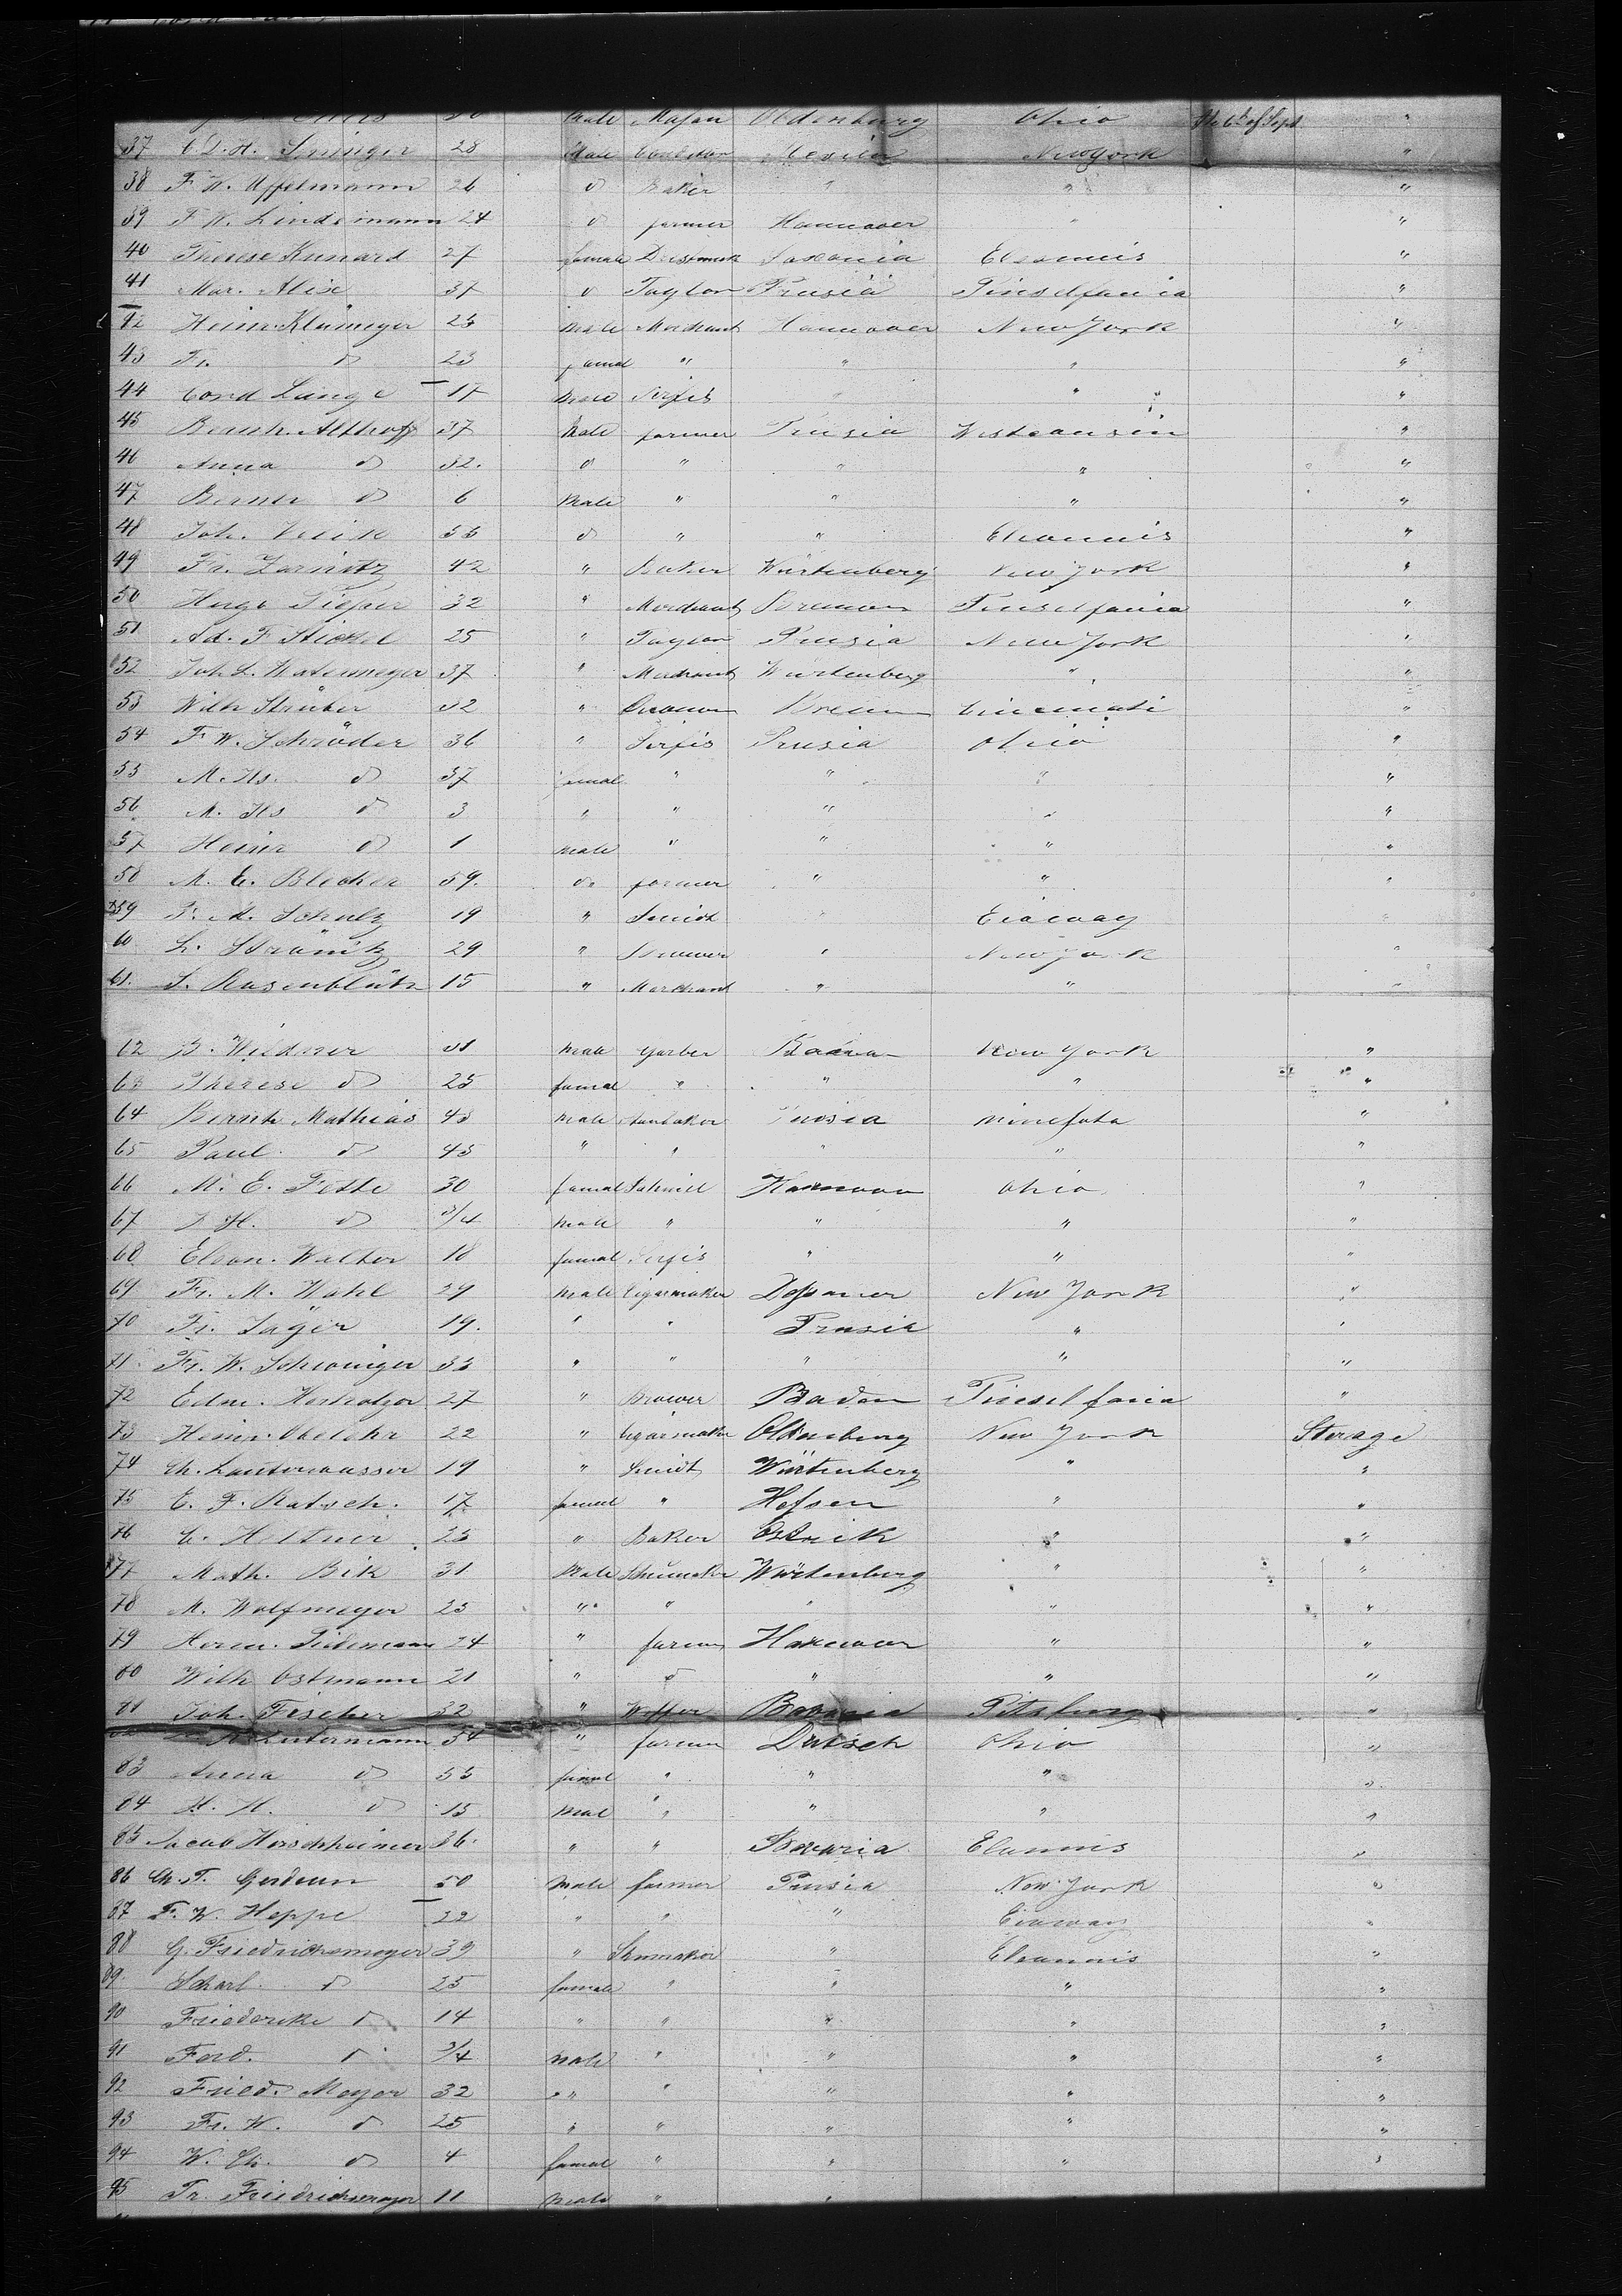 Male Masen Oldenburg Ohio "
37 C. D. H. 28 Male Mexico New york "
38 F. W. Uffelmann 26 d Baker " " "
39 F. W. Lindemann 24 d farmer Hannover " "
40 Therese Kunard 27 female Saxonia Eleonnis "
41 Mar. Alise 37 d Taylor Prusia Pinselfania "
42 Heinr. Kleimeyer 23 male Merchant Hannover New York "
43 Fr. d 23 famel " " " "
44 Cord Lange 17 male Serfis " " "
45 Bernh. Althoff 37 Male farmer Prusia Westcansin "
46 Anna d 32. d " " " "
47 Bernh d 6 Male " " " "
48 Joh. 33 d " " Eleonnis "
49 Fr. Zarnitz 42 " Baker Würtenberg New York "
50 Hugo Sieper 32 " Merchant Bremen Pinselfania "
51 Ad. F. Stickel 25 " Taylor Prusia New York "
52 Joh. L. 37 " Merchant Würtenberg " "
53 Wilh Strüker 32 " Bremen Cincinnati "
54 F. W. Schröder 36 " Serfis Prusia Ohio "
55 M. Ils. d 37 femal " " " "
56 M. Ils d 3 " " " " "
57 Heinr d 1 male " " " "
58 M. E. Blecker 59. do farmer " " "
59 F. A. Schulz 19 " Smidt " Eiaway "
60 L. 29 " " New York "
61. S. Rosenblüth 15 " Marchant " " "
62 B. Wildner 31 Male Garber New York "
63 Therese d 25 famal " " " "
64 Bernh Mathias 43 Male Prusia Minesota "
65 Paul d 45 " " " " "
66 M. E. Fette 30 famal Hannover Ohio "
67 J H. d 3/4 Male " " " "
68 Eleon. Walter 18 famal Serfis " " "
69 Fr. M. Wahl 29 Male Cigarmaker New York "
70 Fr. Jäger 19. " " Prusia " "
71. Fr. W. Schwinger 33 " " " " "
72 Edm. 27 " Brower Baden Pinselfania "
73 Heinr. 22 " Cigarmaker Oldenburg New York Sterage
74 Ch. Lautenausser 19 " Smidt Würtenberg " "
75 E. F. Ratsch. 17 famel " Hessen " "
76 C. Heltner 25 " Baker " "
77 Math. Bik 31 Male Schumaker Würtenberg " "
78 M. Wolfmeyer 23 " " " " "
79 Herm. Tiedemann 24 " farmer Hannover " "
80 Wilh Ostmann 21 " d " " "
81 Joh. Fischer 32 " Bavaria Pitsburg "
82 Lustermann 34 " farmer Dutsch Ohio "
83 Anna d 33 famel " " " "
84 H. H. d 15 Mal " " " "
85 Jacob Hirschheimer 36. " " Bavaria Elennis "
86 Ch. F. 50 Male farmer Prusia New York "
87 F. W. Heppe 22 " " " Eiaway "
88 G. Friedrichsmeyer 39 " Shumaker " Eleonnis "
89. Scharl. d 25 famale " " " "
90 Friederike d 14 " " " " "
91 Ferd. d 3/4 Male " " " "
92 Fried. Meyer 32 " " " " "
93 Fr. W. d 25 " " " " "
94 W. Ch. d 4 famal " " " "
95 Fr. Friedrichsmeyer 11 Male " "